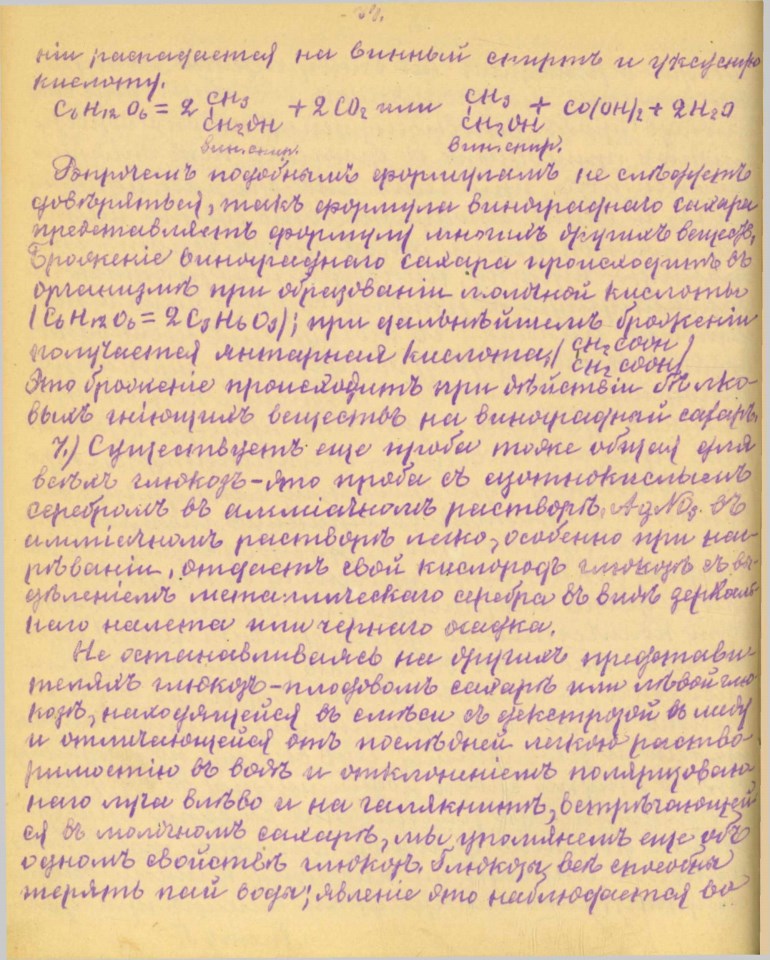 ніи распадается на винный спиртъ и уксусную
кислоту.
C6H12O6 = 2 CH3 CH2OH + 2CO2 или CH3 CH2OH + CO(OH)2 + 2H2O
вин. спир. вин. спир.
Впрочемъ подобнымъ формуламъ не слѣдуетъ
довѣряться, такъ формула винограднаго сахара
представляетъ формулу многихъ другихъ веществ.
Броженіе винограднаго сахара происходитъ въ
организмѣ при образованіи молочной кислоты
(C6H12O6 = 2C3H6O3); при дальнѣйшемъ броженіи
получается янтарная кислота (CH2COOH CH2COOH)
Это броженіе происходитъ при дѣйствіи бѣлко-
выхъ гніющихъ веществъ на виноградный сахаръ.
7.) Существуетъ еще проба тоже общая для
всѣхъ глюкозъ – это проба съ азотнокислымъ
серебромъ въ амміачномъ растворѣ. AgNO3 въ
амміачномъ растворѣ легко, особенно при наг-
рѣваніи, отдаетъ свой кислородъ глюкозѣ съ вы-
дѣленіемъ металлическаго серебра въ видѣ зеркаль-
наго налета или чернаго осадка.
Не останавливаясь на другихъ представи-
теляхъ глюкозъ – плодовомъ сахарѣ или лѣвой глю-
козѣ, находящейся въ смѣси съ декстрозой въ меду
и отличающейся отъ послѣдней легкою раство-
римостію въ водѣ и отклоненіемъ поляризован-
наго луча влѣво и на галактитѣ, встрѣчающей-
ся въ молочномъ сахарѣ, мы упомянемъ еще объ
одномъ свойствѣ глюкозъ. Глюкозы всѣ способны
терять пай воды; явленіе это наблюдается во